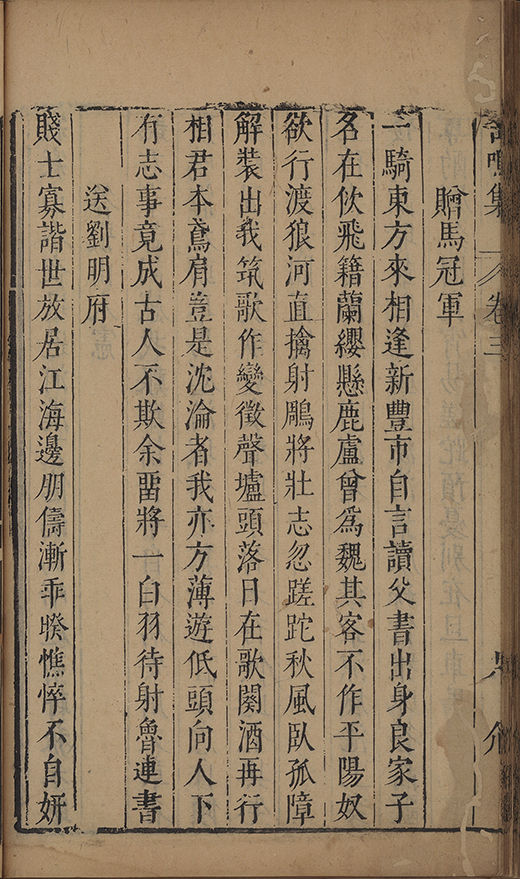 鳴集 卷三
贈馬冠軍
一騎東方來相逢新豐市自言讀父書出身良家子
名在佽飛籍蘭纓懸鹿盧曾爲魏其客不作平陽奴
欲行渡狼河直擒射鵰將壯志忽蹉跎秋風臥孤障
解装出我筑歌作變徵聲壚頭落日在歌闋酒再行
相君本鳶肩豈是沈淪者我亦方薄遊低頭向人下
有志事竟成古人不欺余畱將一白羽待射魯連書
送劉明府
賤士寡諧世放居江海邊朋儔漸乖暌憔悴不自妍